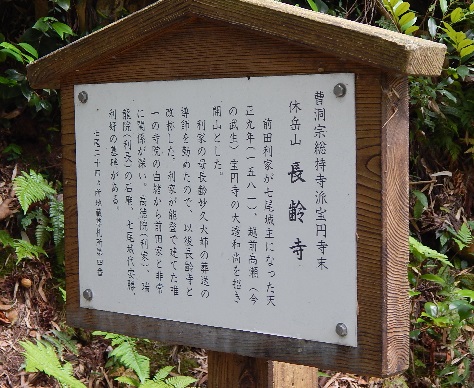 曹洞宗総持寺派宝円寺末
休岳山 長齢寺
前田利家が七尾城主になった天
正九年(一五八一)、越前高瀬(今
の武生)宝円寺の大透和尚を招き
開山とした。
利家の母長齢妙久大姉の葬送の
導師を勤めたので、以後長齢寺と
改称した。利家が能登で建てた唯
一の寺院の由緒から前田家と非常
に関係が深い。長徳院(利家)、瑞
龍院(利長)の石廟、七尾城代安勝、
利好の墓碑がある。